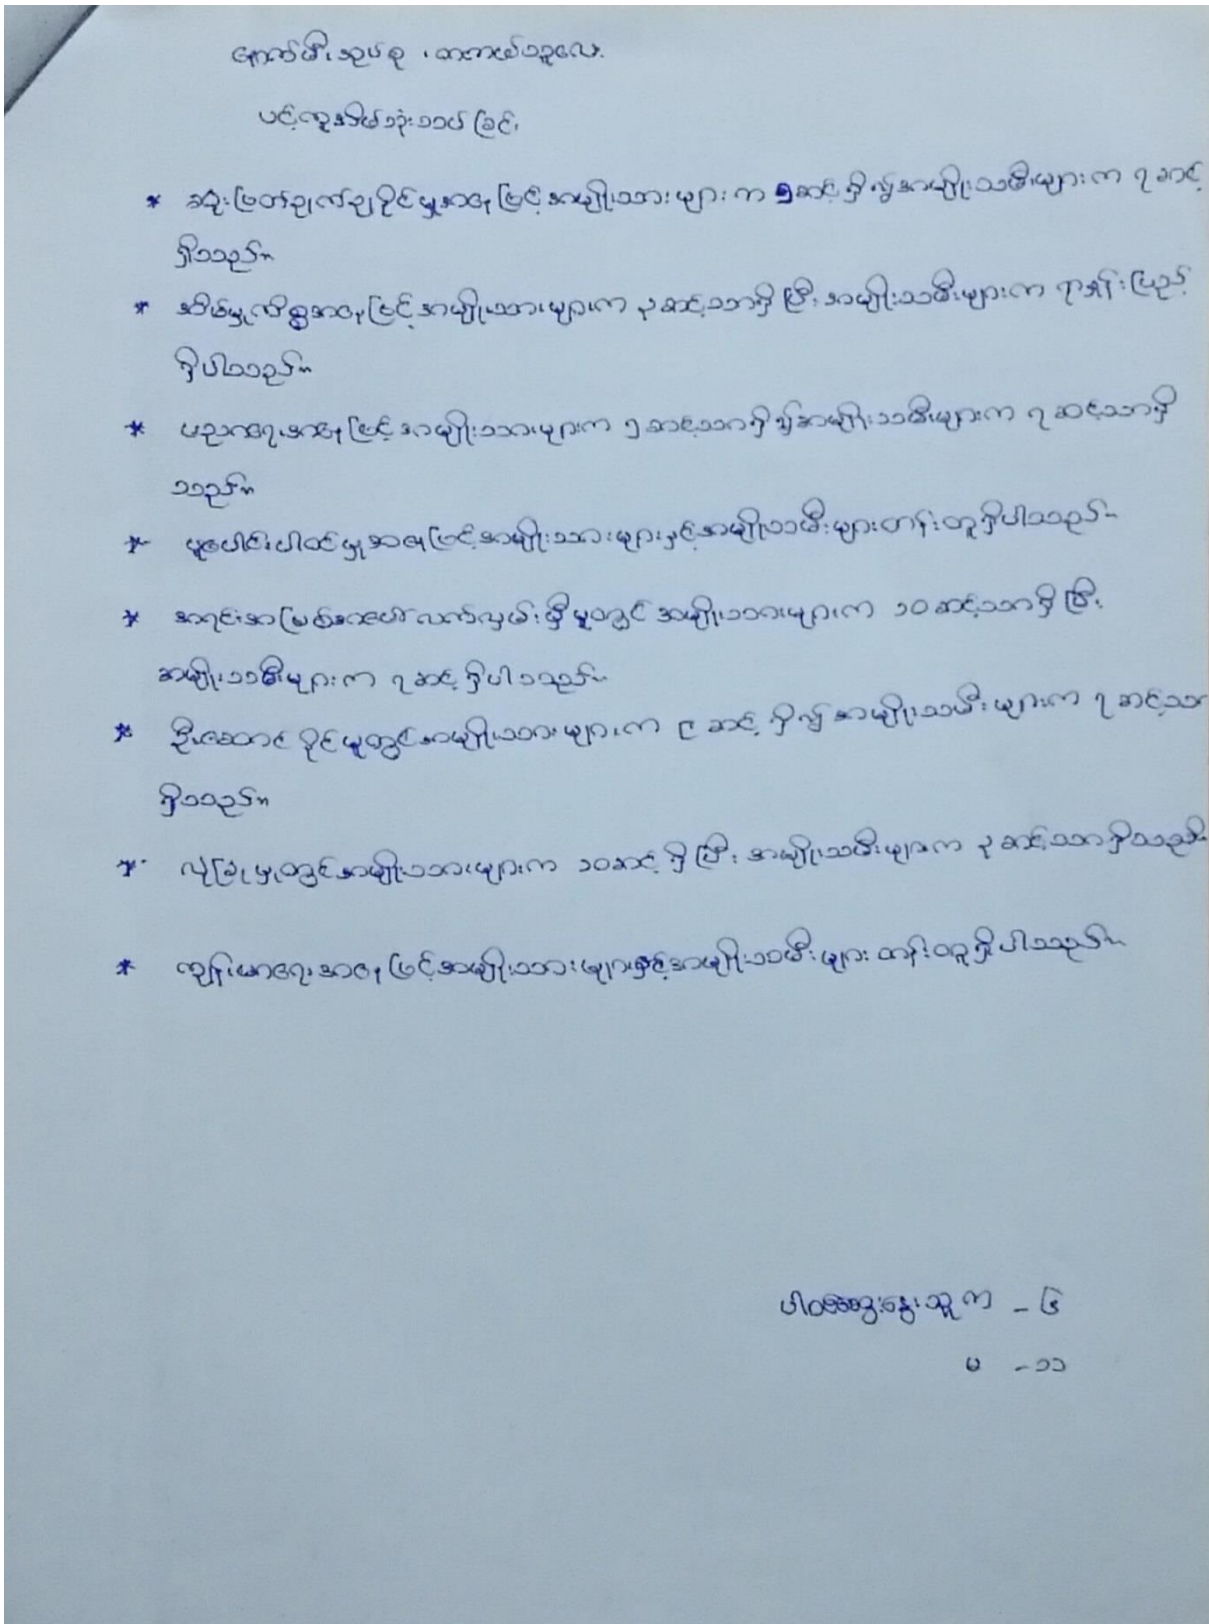 နောက်မီးသုပ်စု ၊ တကယ်သူလေး
ပင့်ကူအိမ်သုံးသပ်ခြင်း
* ဆုံးဖြတ်ဥုက်ချပိုင်မှုအနေဖြင့်အမျိုးသားများက ၅ဆင့်ရှိ၍အမျိုးသမီးများက ၇ဆင့်
ရှိသည်။
* အိမ်မှုကိစ္စအနေဖြင့်အမျိုးသားများက ၃ဆင့်သာရှိပြီး အမျိုးသမီးများက ရာနှုန်းပြည့်
ရှိပါသည်။
* ပညာရေးအနေဖြင့်အမျိုးသားများက ၅ဆင့်သာရှိ၍အမျိုးသမီးများက ၇ဆင့်သာရှိ
သည်။
* ပူပေါင်းပါဝင်မှုအနေဖြင့်အမျိုးသားများနှင့်အမျိုးသမီးများတန်းတူရှိပါသည်။
* အရင်းအမြစ်အပေါ်လက်လှမ်းမှီမှုတွင် အမျိုးသားများက ၁၀ဆင့်သာရှိပြီး
အမျိုးသမီးများက ၇ဆင့်ရှိပါသည်။
* ဦးဆောင်ပိုင်မှုတွင်အမျိုးသားများက ၉ဆင့်ရှိ၍အမျိုးသမီးများက ၇ဆင့်သာ
ရှိသည်။
* လုံခြုံမှုတွင်အမျိုးသားများက ၁၀ဆင့်ရှိပြီး အမျိုးသမီးများက ၃ဆင့်သာရှိသည်။
* ကျန်းမာရေးအနေဖြင့်အမျိုးသားများနှင့်အမျိုးသမီးများတန်းတူရှိပါသည်။
ပါဝင်ဆွေးနွေးသူ ကျ - ၆
မ - ၁၁